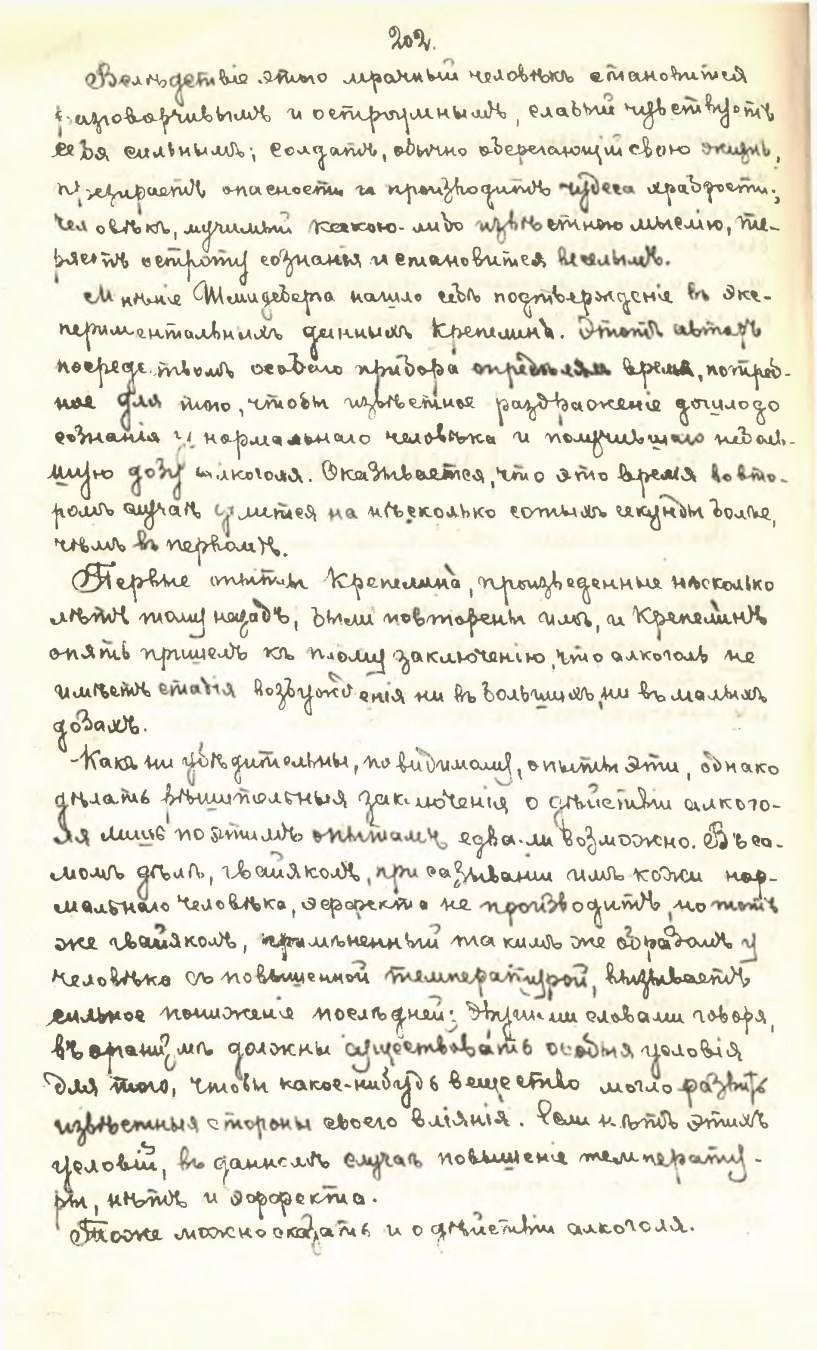 202.
Вслѣдствіе этого мрачный человѣкъ становится
разговорчивымъ и остроумнымъ, слабый чувствуетъ
себя сильнымъ; солдатъ, обычно оберегающій свою жизнь,
презираетъ опасности и производитъ чудеса храбрости;
человѣкъ, мучимый какою-либо извѣстною мыслію, те-
ряетъ остроту сознанія и становится веселымъ.
Мнѣніе Шмидеберга нашло себѣ подтвержденіе въ экс-
периментальныхъ данныхъ Крепелина. Этотъ авторъ
посредствомъ особаго прибора опредѣлялъ время, потреб-
ное для того, чтобы извѣстное раздраженіе дошло до
сознанія у нормальнаго человѣка и получившаго неболь-
шую дозу алкоголя. Оказывается, что это время во вто-
ромъ случаѣ длится на нѣсколько сотыхъ секунды болѣе,
чѣмъ въ первомъ.
Первые опыты Крепелина, произведенные нѣсколько
лѣтъ тому назадъ, были повторены имъ, и Крепелинъ
опять пришелъ къ тому заключенію, что алкоголь не
имѣетъ стадія возбужденія ни въ большихъ, ни въ малыхъ
дозахъ.
Какъ ни убѣдительны, повидимому, опыты эти, однако
дѣлать рѣшительныя заключенія о дѣйствіи алкого-
ля лишь по этимъ опытамъ едва-ли возможно. Въ са-
момъ дѣлѣ, гвайяколъ, при смазываніи имъ кожи нор-
мальнаго человѣка, эффекта не производитъ, но тотъ
же гвайяколъ, примѣненный такимъ же образомъ у
человѣка съ повышенной температурой, вызываетъ
сильное пониженіе послѣдней; другими словами говоря,
въ организмѣ должны существовать особыя условія
для того, чтобы какое-нибудь вещество могло развить
извѣстныя стороны своего вліянія. Если нѣтъ этихъ
условій, въ данномъ случаѣ повышеніе температу-
ры, нѣтъ и эффекта.
Тоже можно сказать и о дѣйствіи алкоголя.